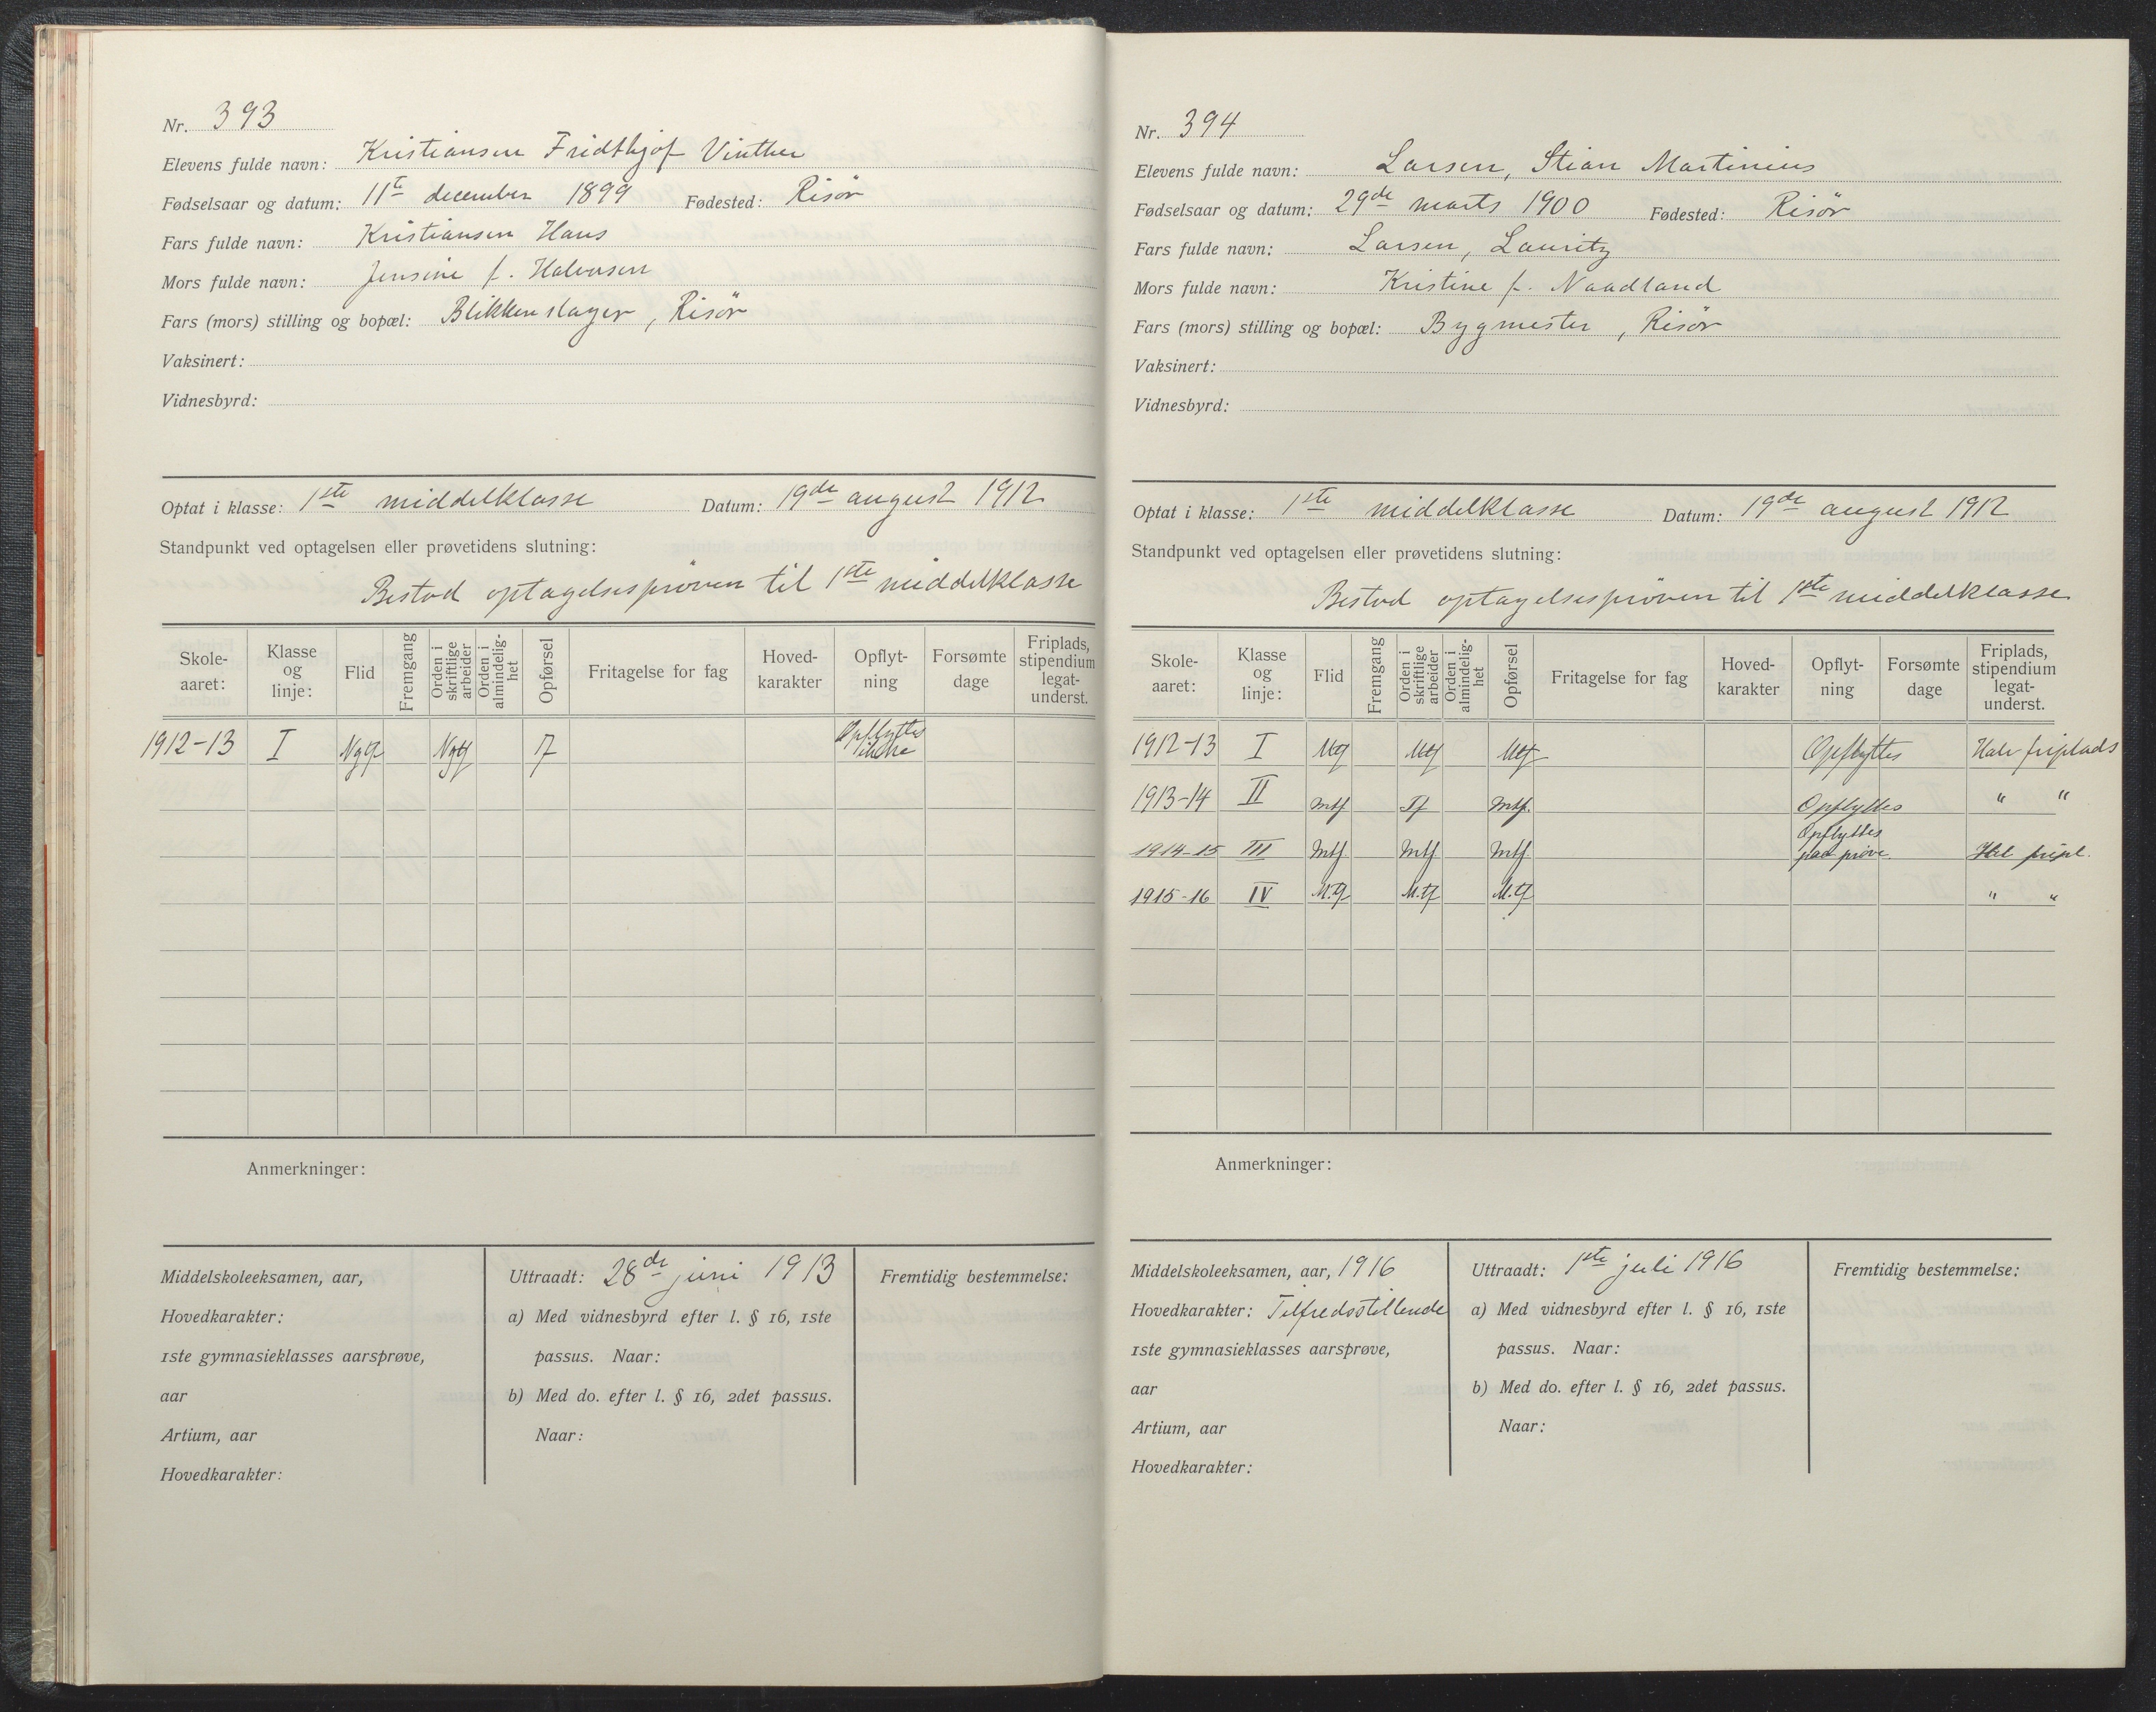 Nr. 393
Elevens fulde navn: Kristiansen Fridthjof Vinther
Fødselsaar og datum: 11te december 1899 Fødested: Risör
Fars fulde navn: Kristiansen Hans
Mors fulde navn: Jensine f. Halvorsen
Fars (mors) stilling og bopæl: Blikkenslager, Risör
Vaksinert:
Vidnesbyrd:
Optat i klasse: 1ste middelklasse Datum: 19de august 1912
Standpunkt ved optagelsen eller prøvetidens slutning:
Bestod optagelsesprøven til 1ste middelklasse
Skole-aaret: Klasse og linje: Flid Fremgang Orden i skriftlige arbeider Orden i almindelig-het Opførsel Fritagelse for fag Hoved-karakter Opflyt-ning Forsømte dage Friplads, stipendium legat-underst.
1912-13 I Ngtf Ngtf Opflyttes ikke
Anmerkninger:
Middelskoleeksamen, aar,
Hovedkarakter:
1ste gymnasieklasses aarsprøve,
aar
Artium, aar
Hovedkarakter:
Uttraadt: 28de juni 1913
a) Med vidnesbyrd efter l. § 16, 1ste
passus. Naar:
b) Med do. efter l. § 16, 2det passus.
Naar:
Fremtidig bestemmelse:
Nr. 394
Elevens fulde navn: Larsen, Stian Martinius
Fødselsaar og datum: 29de marts 1900 Fødested: Risör
Fars fulde navn: Larsen, Lauritz
Mors fulde navn: Kristine f. Naadland
Fars (mors) stilling og bopæl: Bygmester, Risör
Vaksinert:
Vidnesbyrd:
Optat i klasse: 1ste middelklasse Datum: 19de august 1912
Standpunkt ved optagelsen eller prøvetidens slutning:
Bestod optagelsesprøven til 1ste middelklasse
Skole-aaret: Klasse og linje: Flid Fremgang Orden i skriftlige arbeider Orden i almindelig-het Opførsel Fritagelse for fag Hoved-karakter Opflyt-ning Forsømte dage Friplads, stipendium legat-underst.
1912-13 I Mtf Mtf Mtf Opflyttes Halv friplads
1913-14 II Mtf. Tf Mtf. Opflyttes " "
1914-15 III Mtf. Mtf. Mtf. Opflyttes paa prøve. Hel fripl.
1915-16 IV M.tf M.tf M.tf " "
Anmerkninger:
Middelskoleeksamen, aar, 1916
Hovedkarakter: Tilfredsstillende
1ste gymnasieklasses aarsprøve,
aar
Artium, aar
Hovedkarakter:
Uttraadt: 1ste juli 1916
a) Med vidnesbyrd efter l. § 16, 1ste
passus. Naar:
b) Med do. efter l. § 16, 2det passus.
Naar:
Fremtidig bestemmelse: